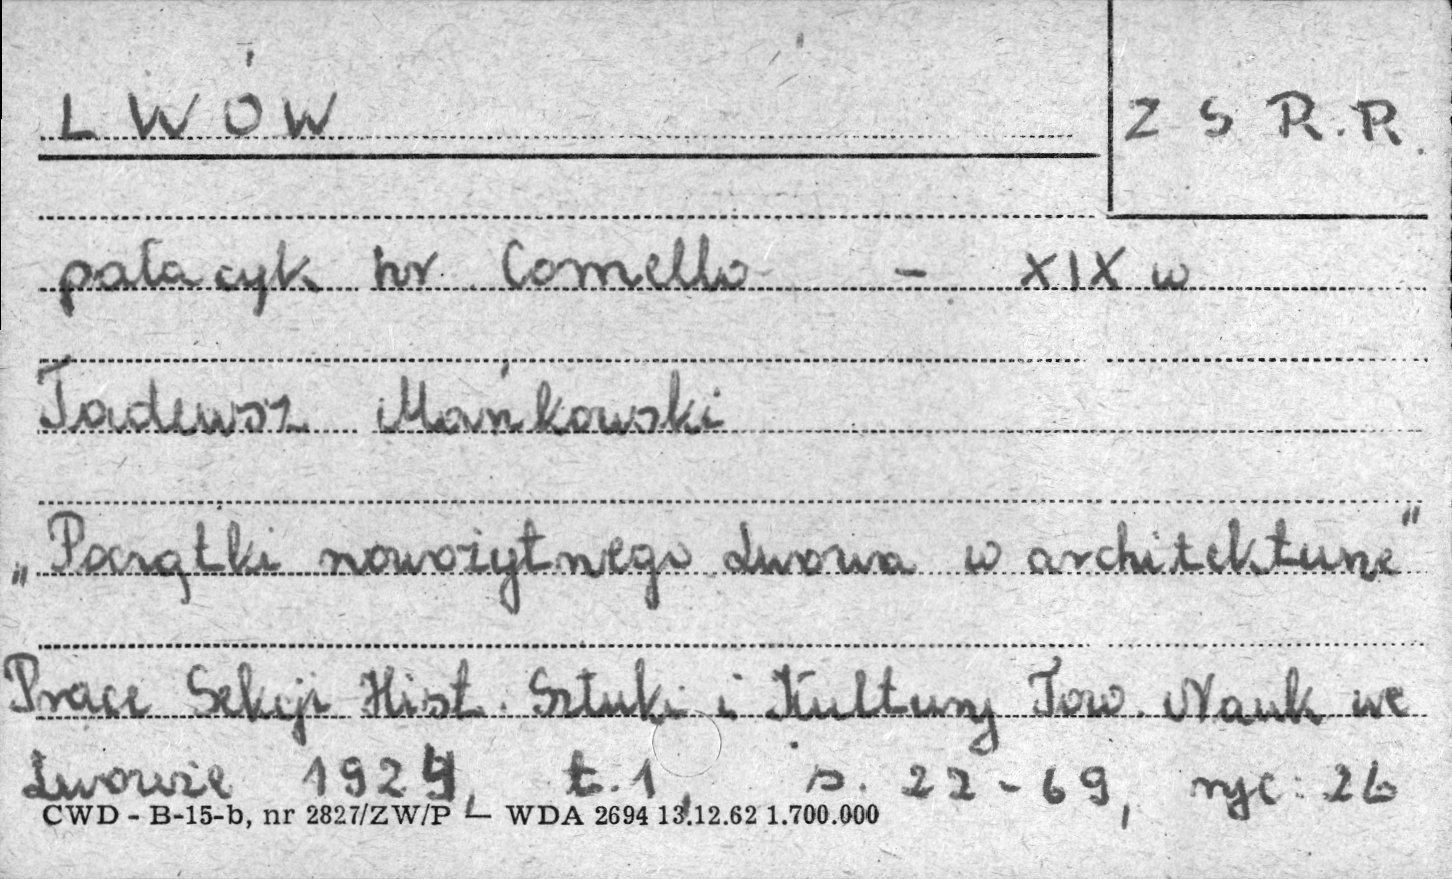 LWÓW
Z S R.R.
pałacyk hr. Comello - XIX w
Tadeusz Mańkowski
„Początki nowożytnego Lwowa w architekturze"
Prace Sekcji Hist. Sztuki i Kultury Tow. Nauk we
Lwowie 1929, t. 1, s. 22-69, ryc: 26
CWD - B-15-b, nr 2827/ZW/P — WDA 2694 13.12.62 1.700.000